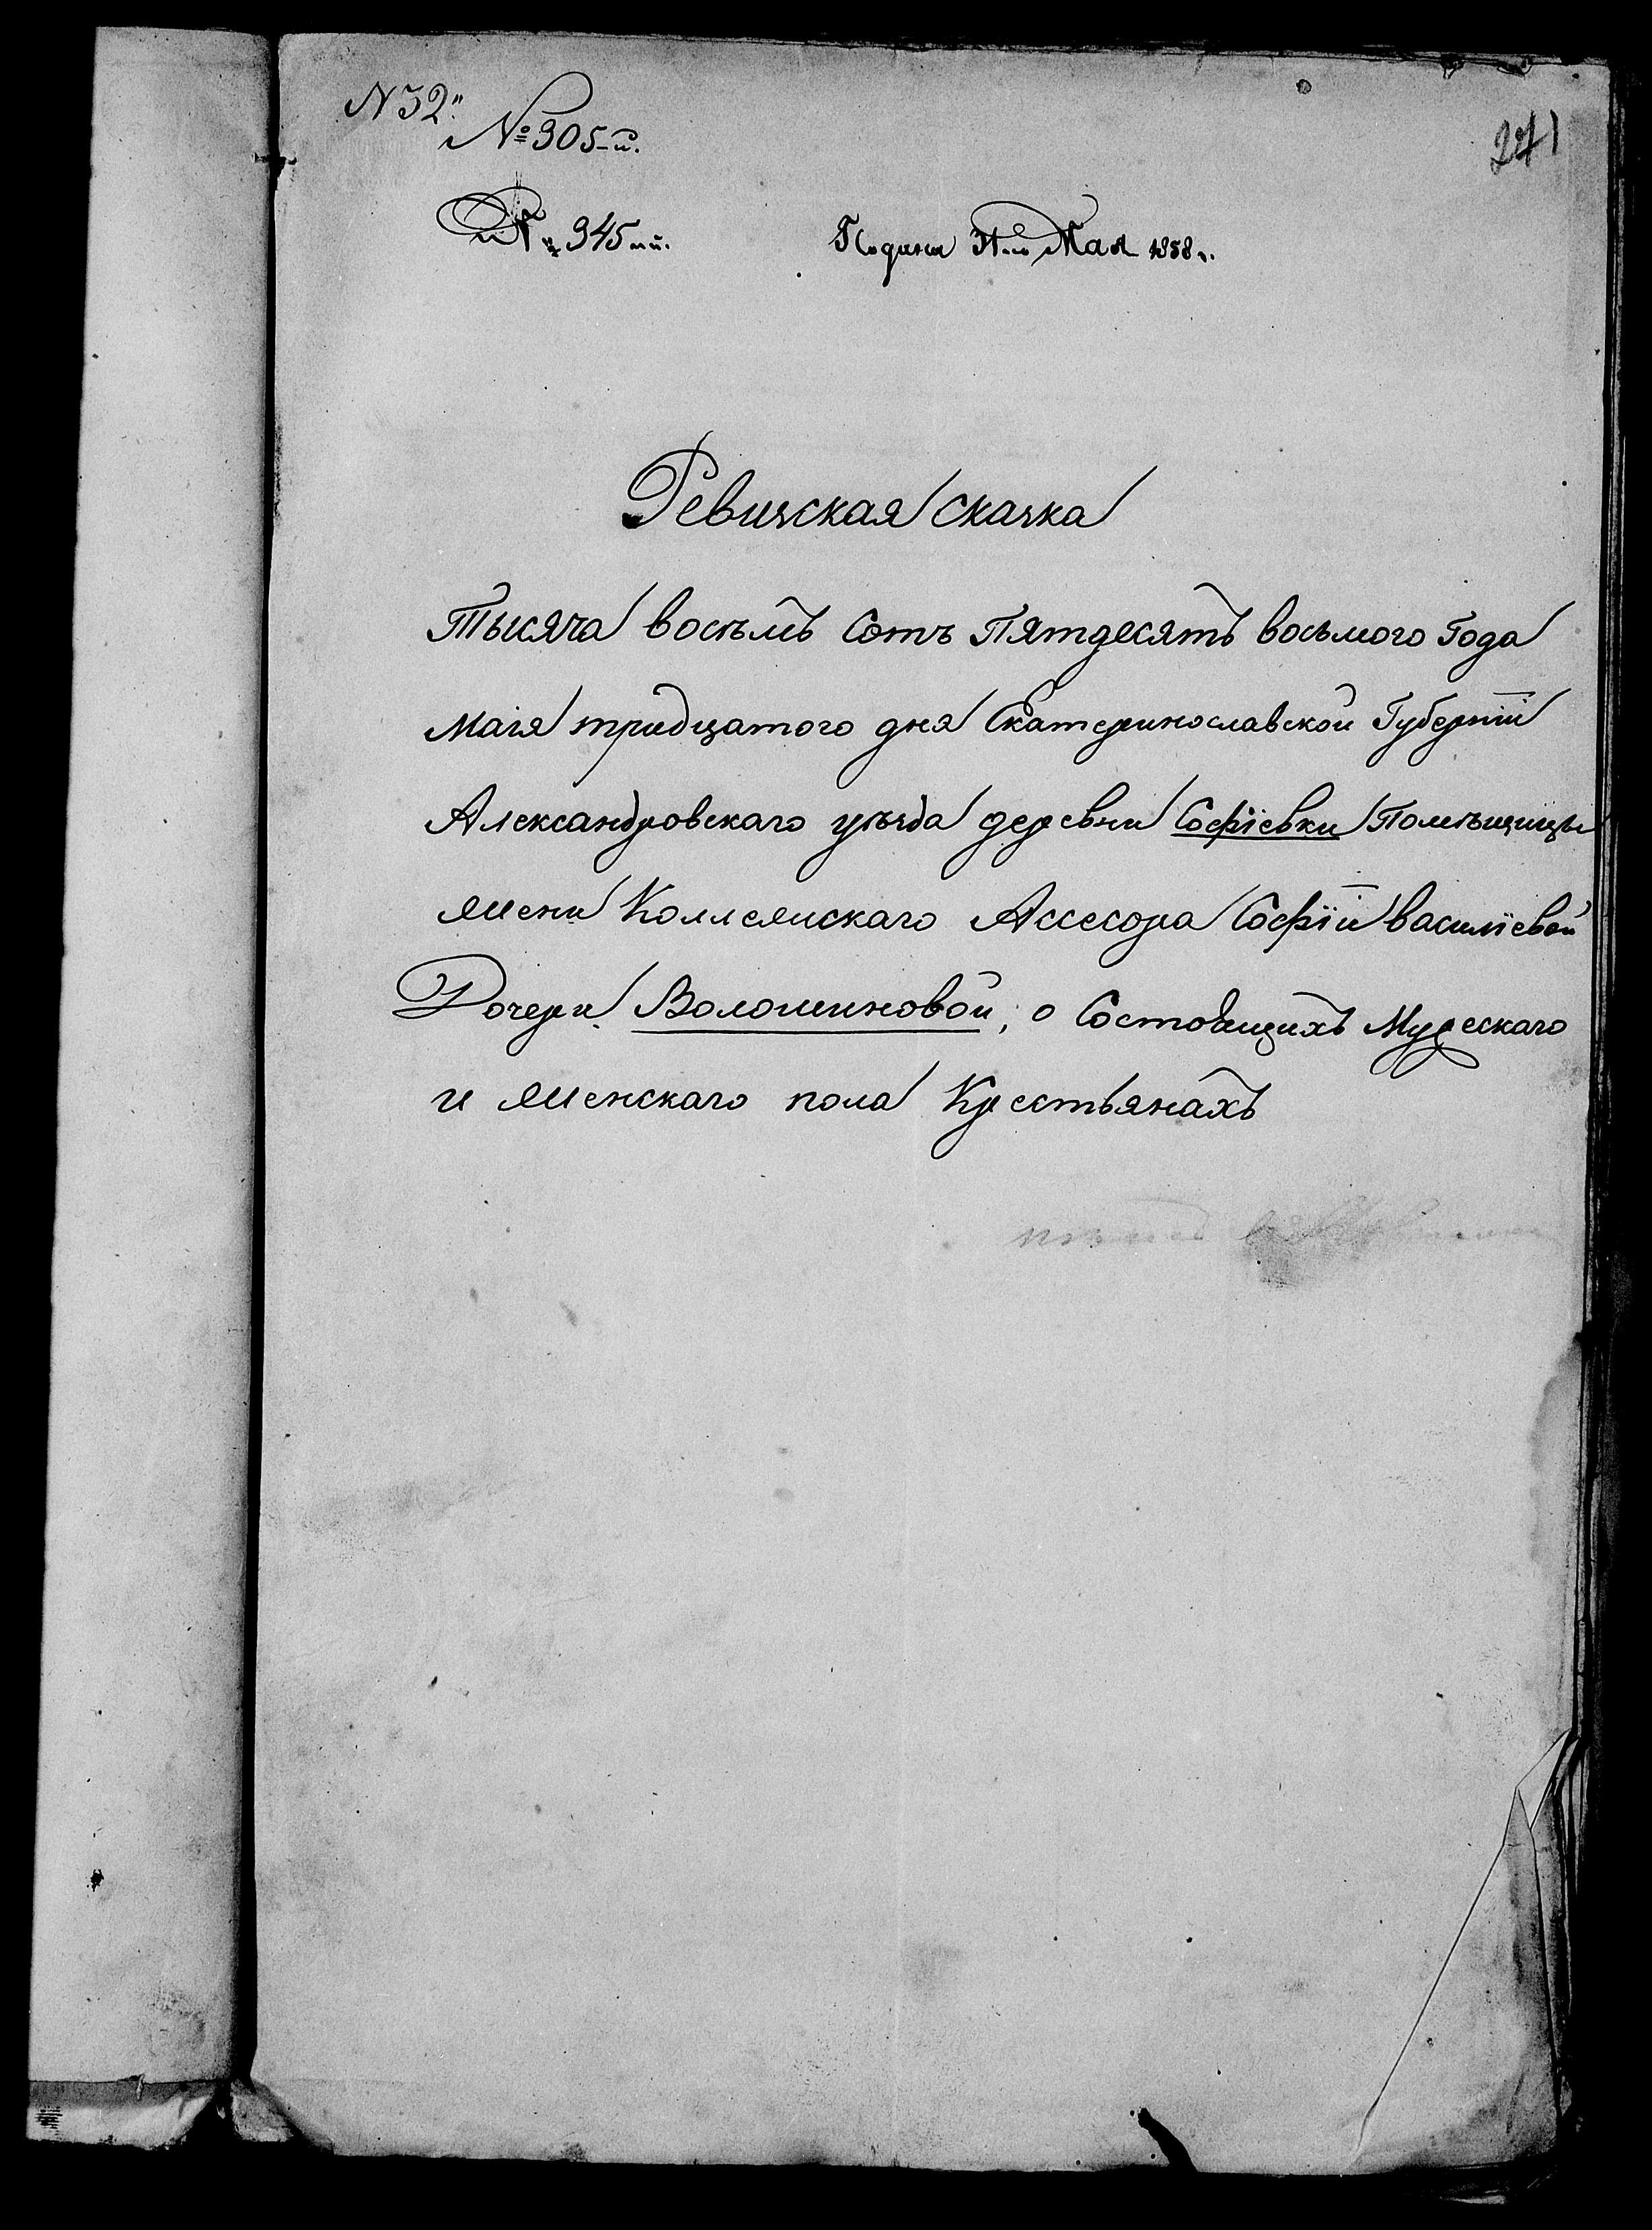 N 32.
№ 305-й.
241
№ 345-ий. Подана 31-го Мая 1858 г.
Ревизская сказка
Тысяча восѣмъ Сотъ Пятдесятъ восьмого Года
Маія тридцатого дня Екатеринославской Губерніи
Александровскаго уѣзда деревни Софіевки Помѣщицы
жены Коллежскаго Ассесора Софіи василіевой
Дочери Волошиновой, о Состоящихъ Мужескаго
и женскаго пола Крестьянахъ